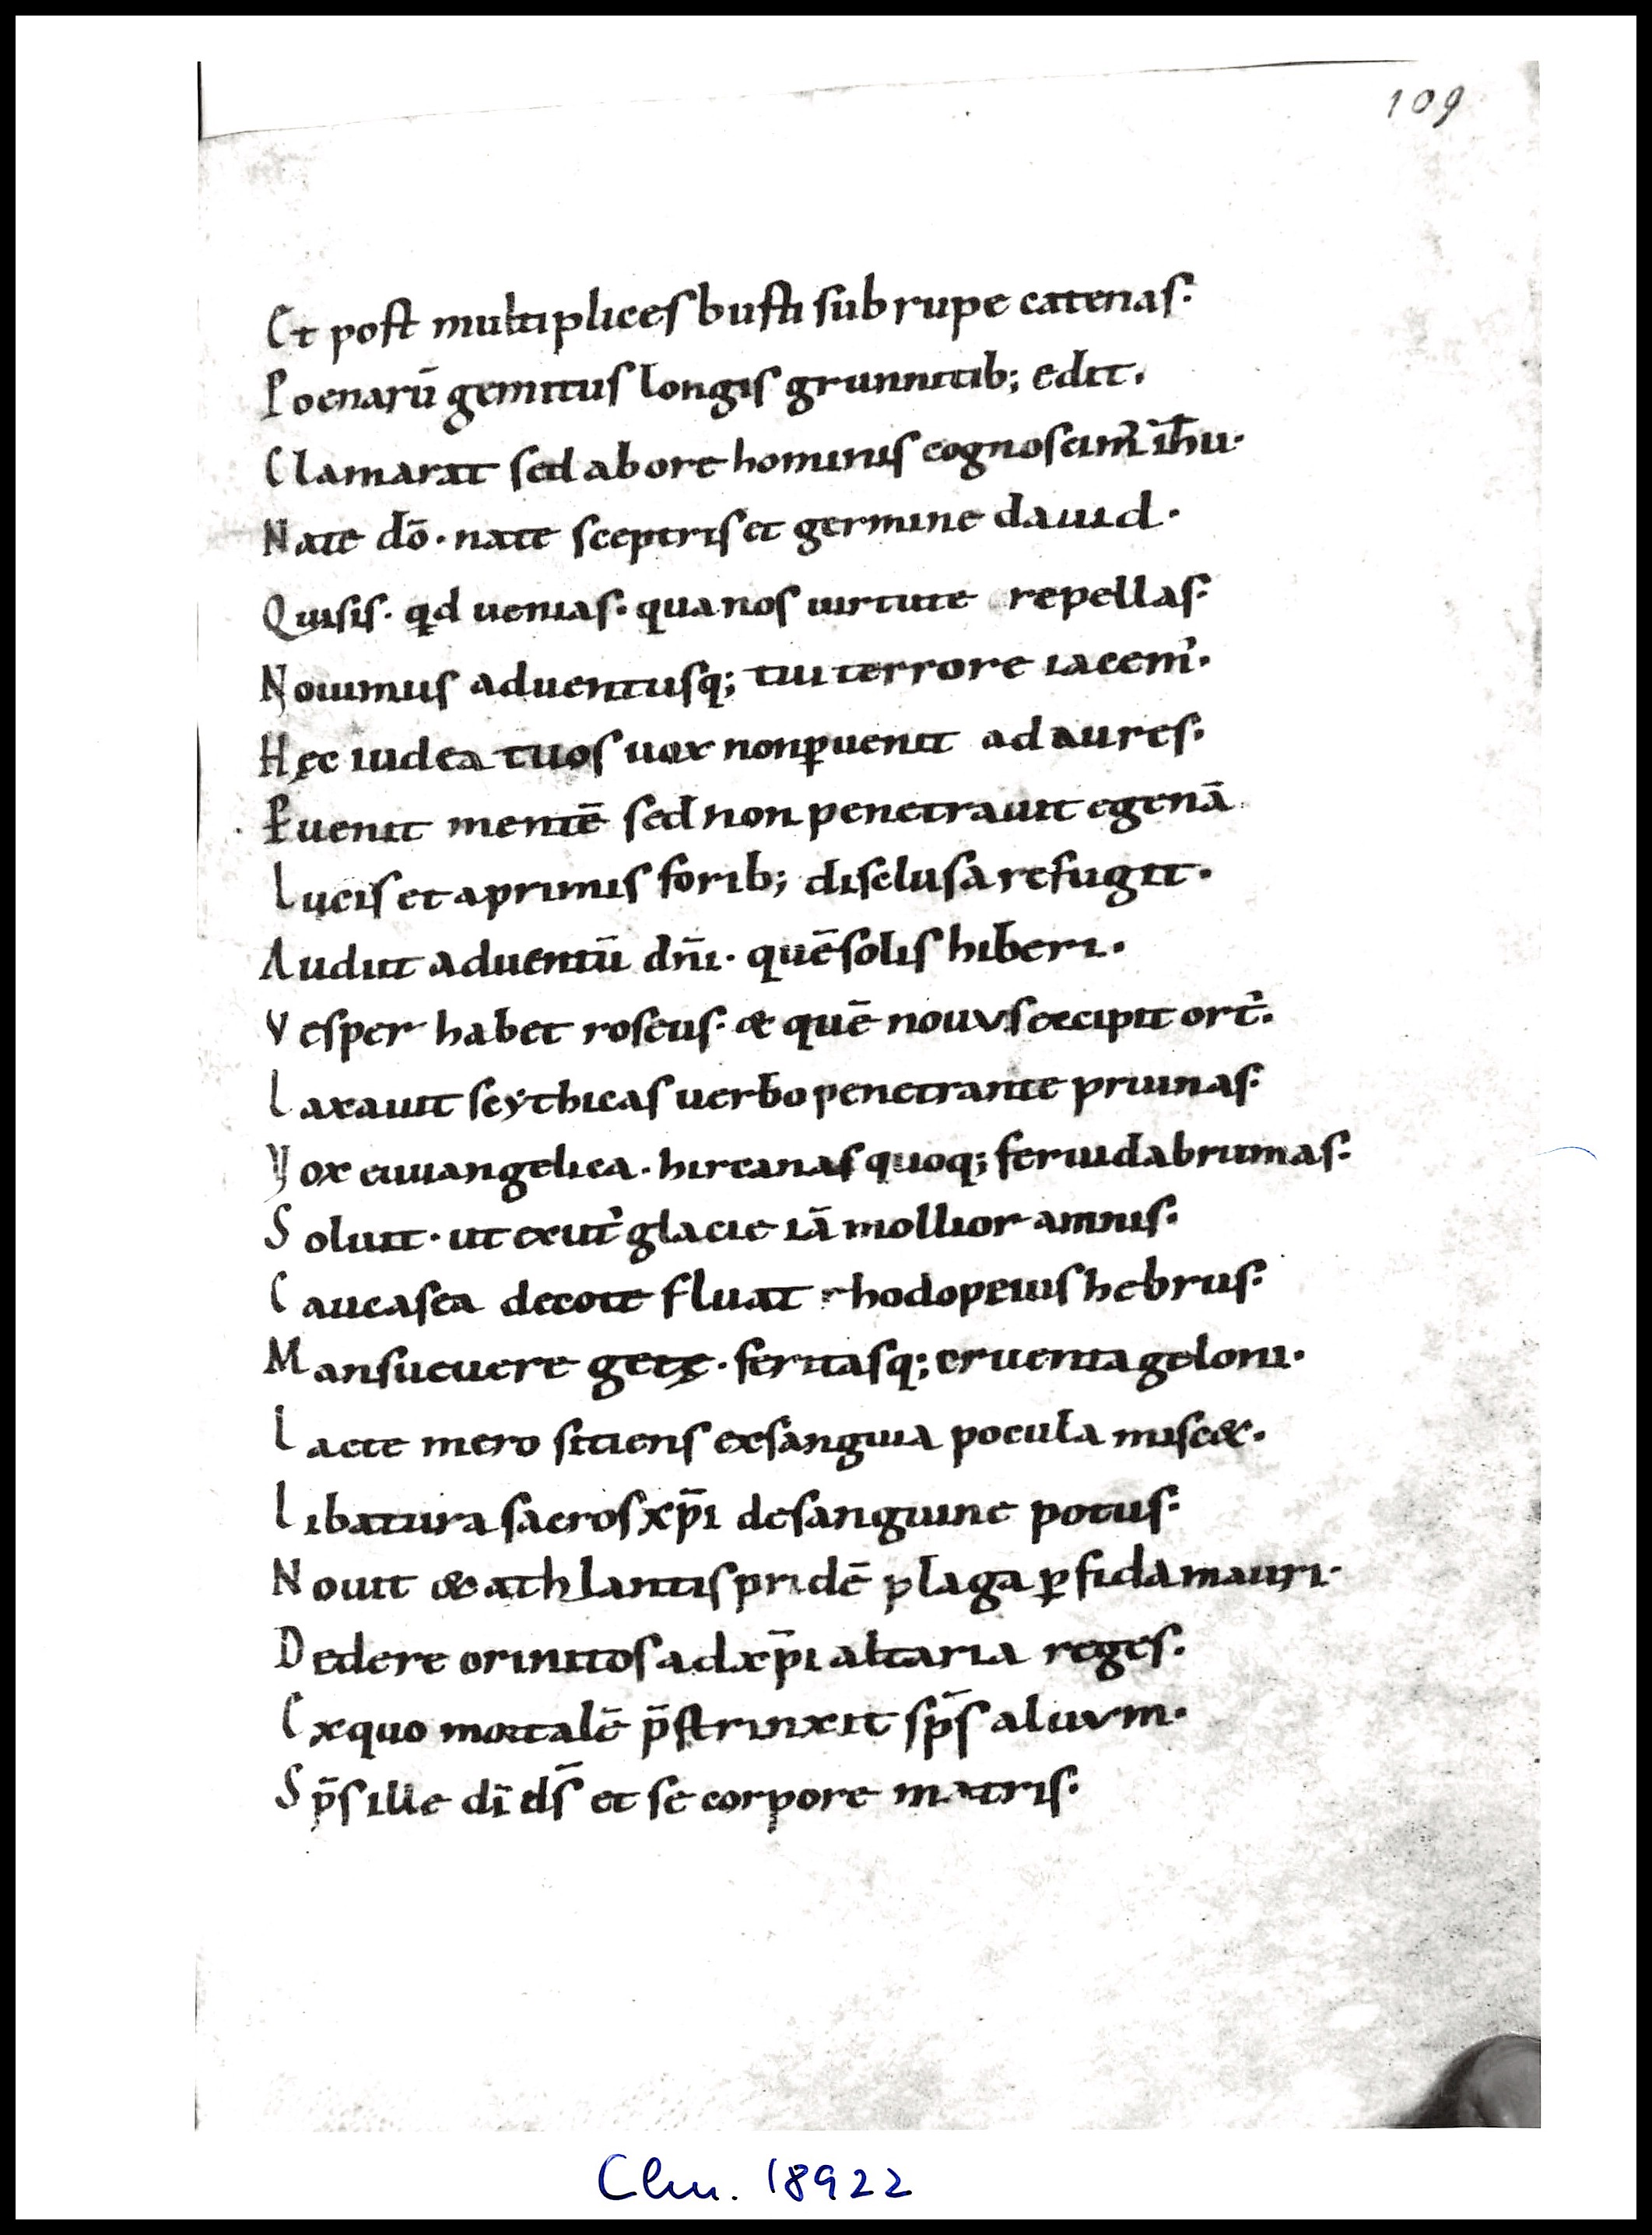 109
Et post multiplices busti sub rupe catenas·
Poenarū gemitus longis grunnitib; edit.
Clamarat sed ab ore hominis cognoscim᾽ ih̄u·
Nate dō· nate sceptris et germine dauid·
Quisis· qđ uenias· qua nos uirtute repellas·
Nouimus aduentusq; tui terrore iacem᾽·
Hęc iudea tuos uox non ꝑuenit ad aures·
Ꝑuenit mentē sed non penetrauit egenā
Lucis et a primis forib; disclusa refugit·
Audiit aduentū dn̄i· quē solis hiberi·
Vesper habet roseus· & quē nouus excipit ort᾽·
Laxauit scythicas uerbo penetrante pruinas·
Vox euuangelica· hircanas quoq; feruida brumas·
Soluit· ut exut᾽ glacie iā mollior amnis·
Caucasea decote fluat rhodopeius hebrus·
Mansueuere getę· feritasq; cruenta geloni·
Lacte mero sitiens exsanguia pocula misc&·
Libatura sacros xp̄i de sanguine potus·
Nouit & athlantis pridē plaga ꝑfida mauri·
Dedere crinitos ad xp̄i altaria reges·
Ex quo mortalē p̄strinxit sp̄s aluum·
Sp̄s ille dī ds̄ et se corpore matris·
Clm. 18922